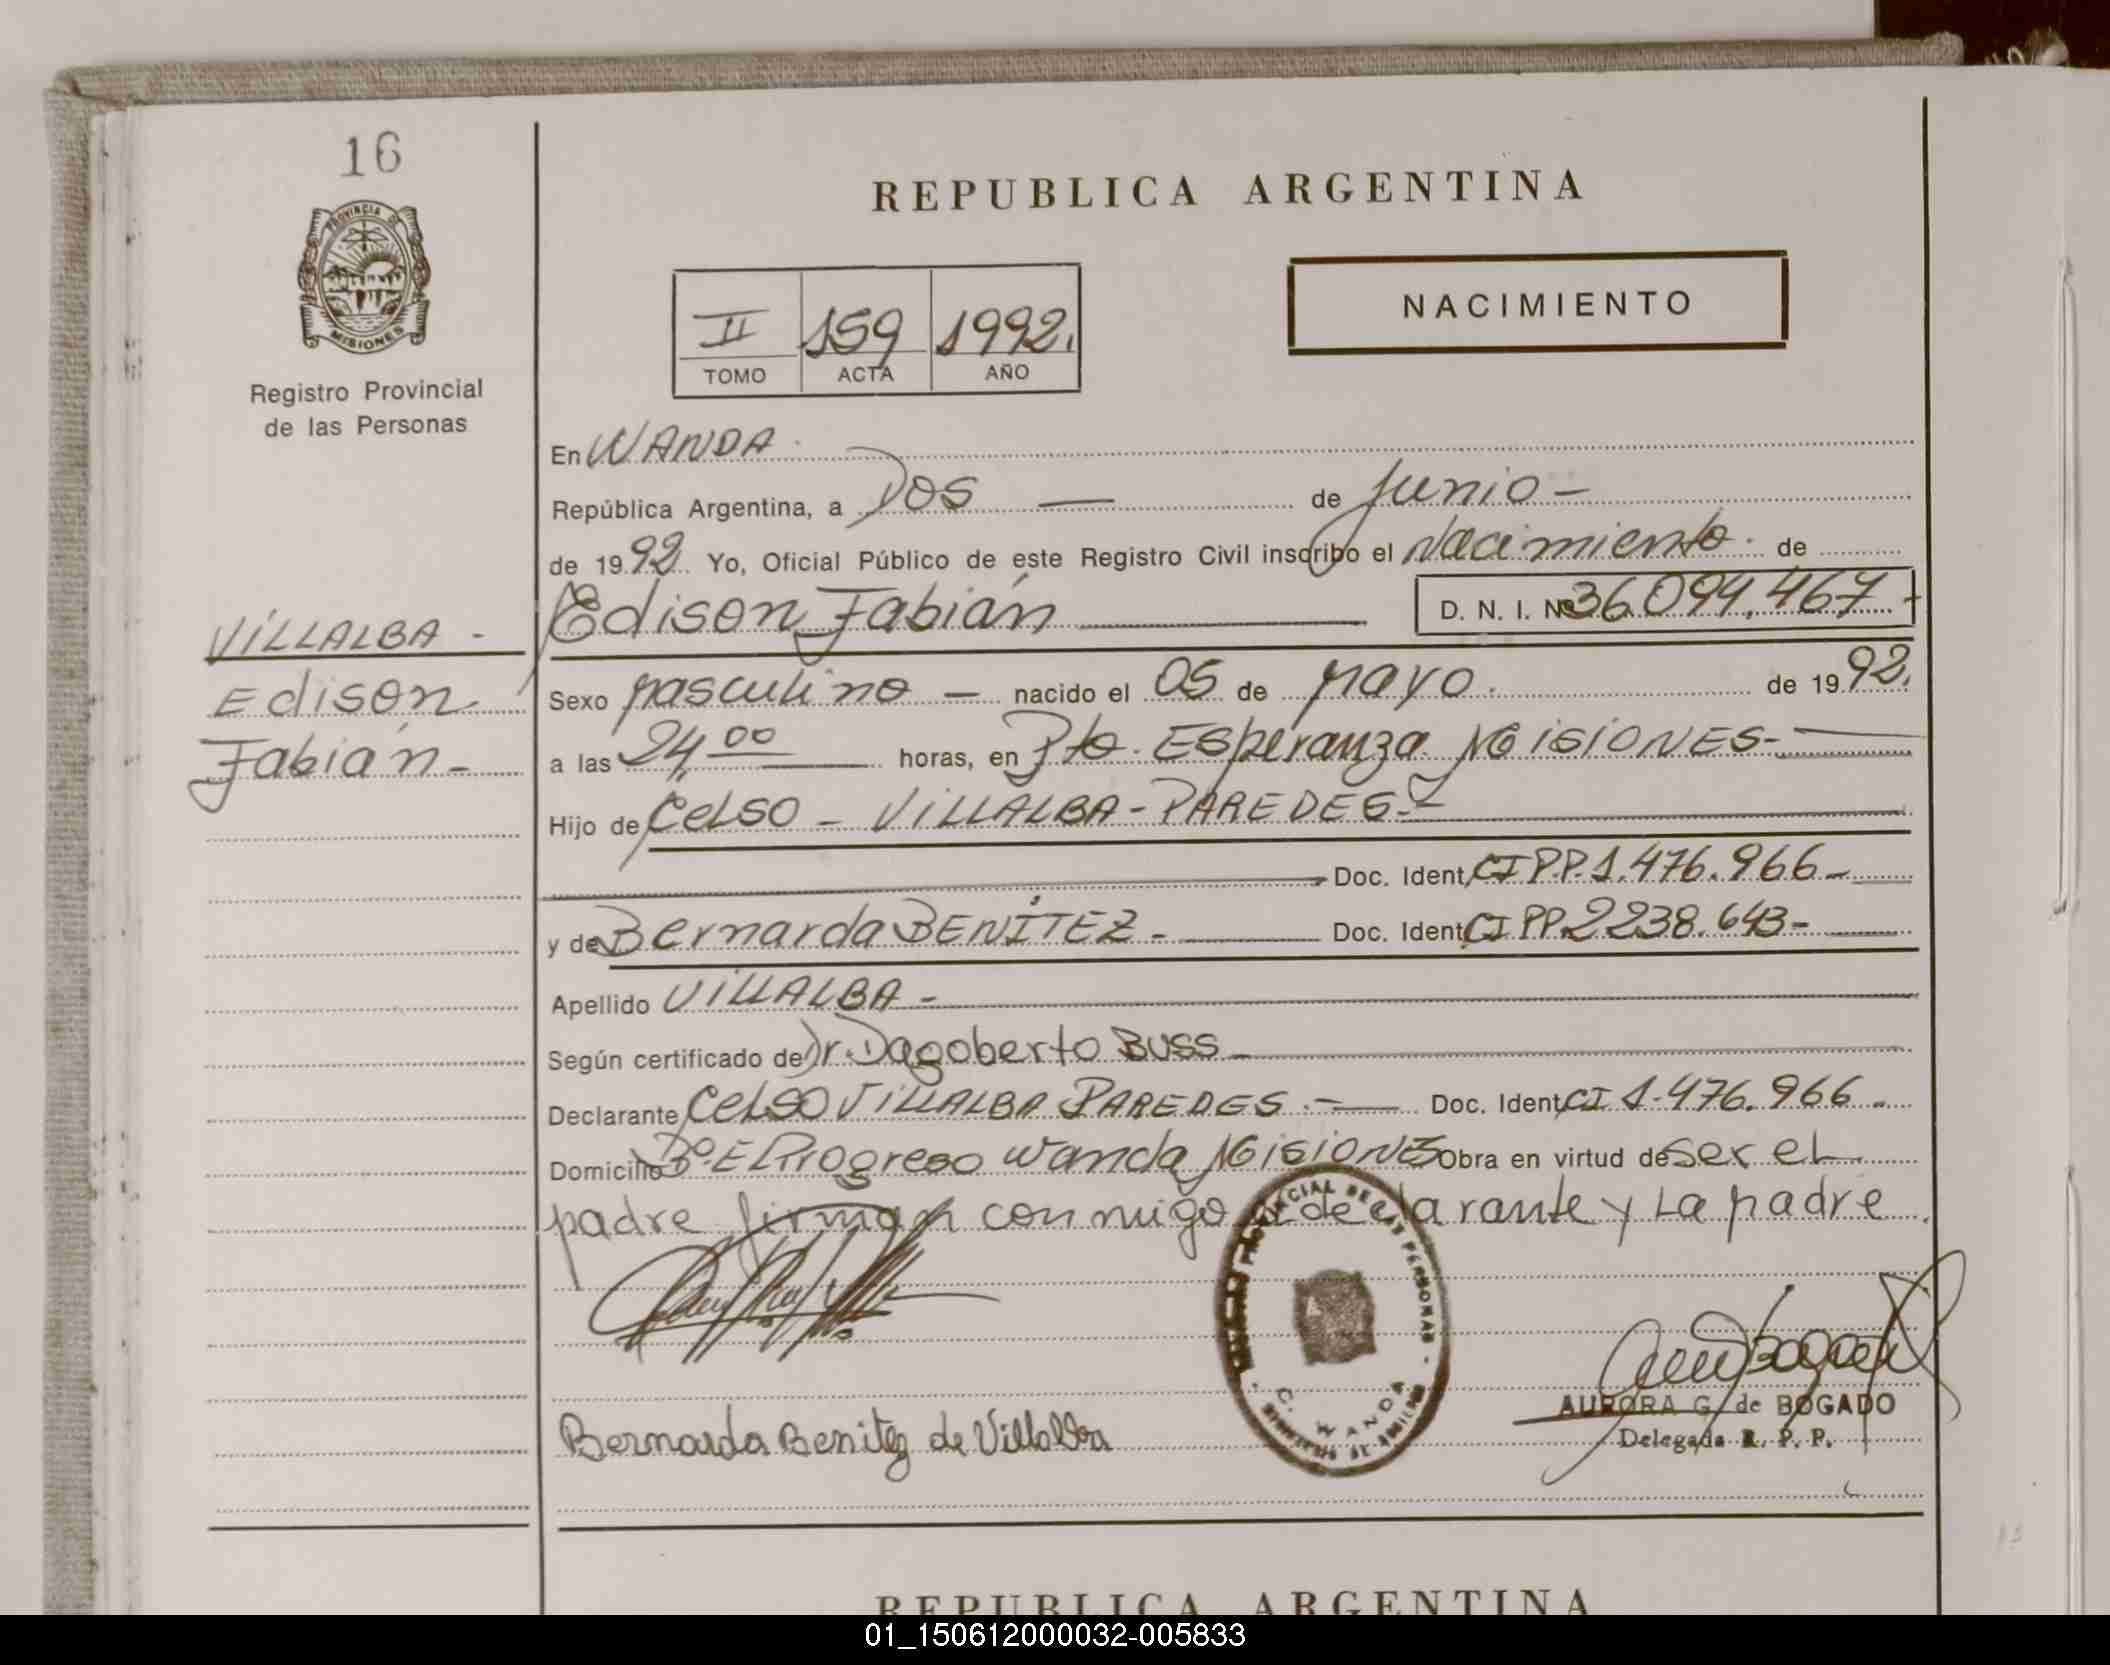 16
PROVINCIA DE
MISIONES
Registro Provincial
de las Personas
REPUBLICA ARGENTINA
NACIMIENTO
II 159 1992.
TOMO ACTA AÑO
En WANDA
República Argentina, a Dos — de Junio -
de 1992. Yo, Oficial Público de este Registro Civil inscribo el Nacimiento. de
Edison Fabián D. N. I. Nº 36.094.467 -
VILLALBA -
Edison
Fabián -
Sexo Masculino — nacido el 05 de Mayo. de 1992.
a las 24,00 horas, en Pto. Esperanza MISIONES -
Hijo de CELSO - VILLALBA - PAREDES. -
Doc. Ident. CI P.P. 1.476.966 -
y de Bernarda BENÍTEZ - Doc. Ident. CI P.P. 2238.643 -
Apellido VILLALBA -
Según certificado de Dr. Dagoberto BUSS -
Declarante CELSO VILLALBA PAREDES. - Doc. Ident. CI 1.476.966 -
Domicilio Bº El Progreso Wanda MISIONES Obra en virtud de ser el
padre firman conmigo el declarante y La Madre.
PROVINCIAL DE LAS PERSONAS
WANDA
Bernarda Benitez de Villalba
AURORA G. de BOGADO
Delegada R. P. P.
REPUBLICA ARGENTINA
01_150612000032-005833